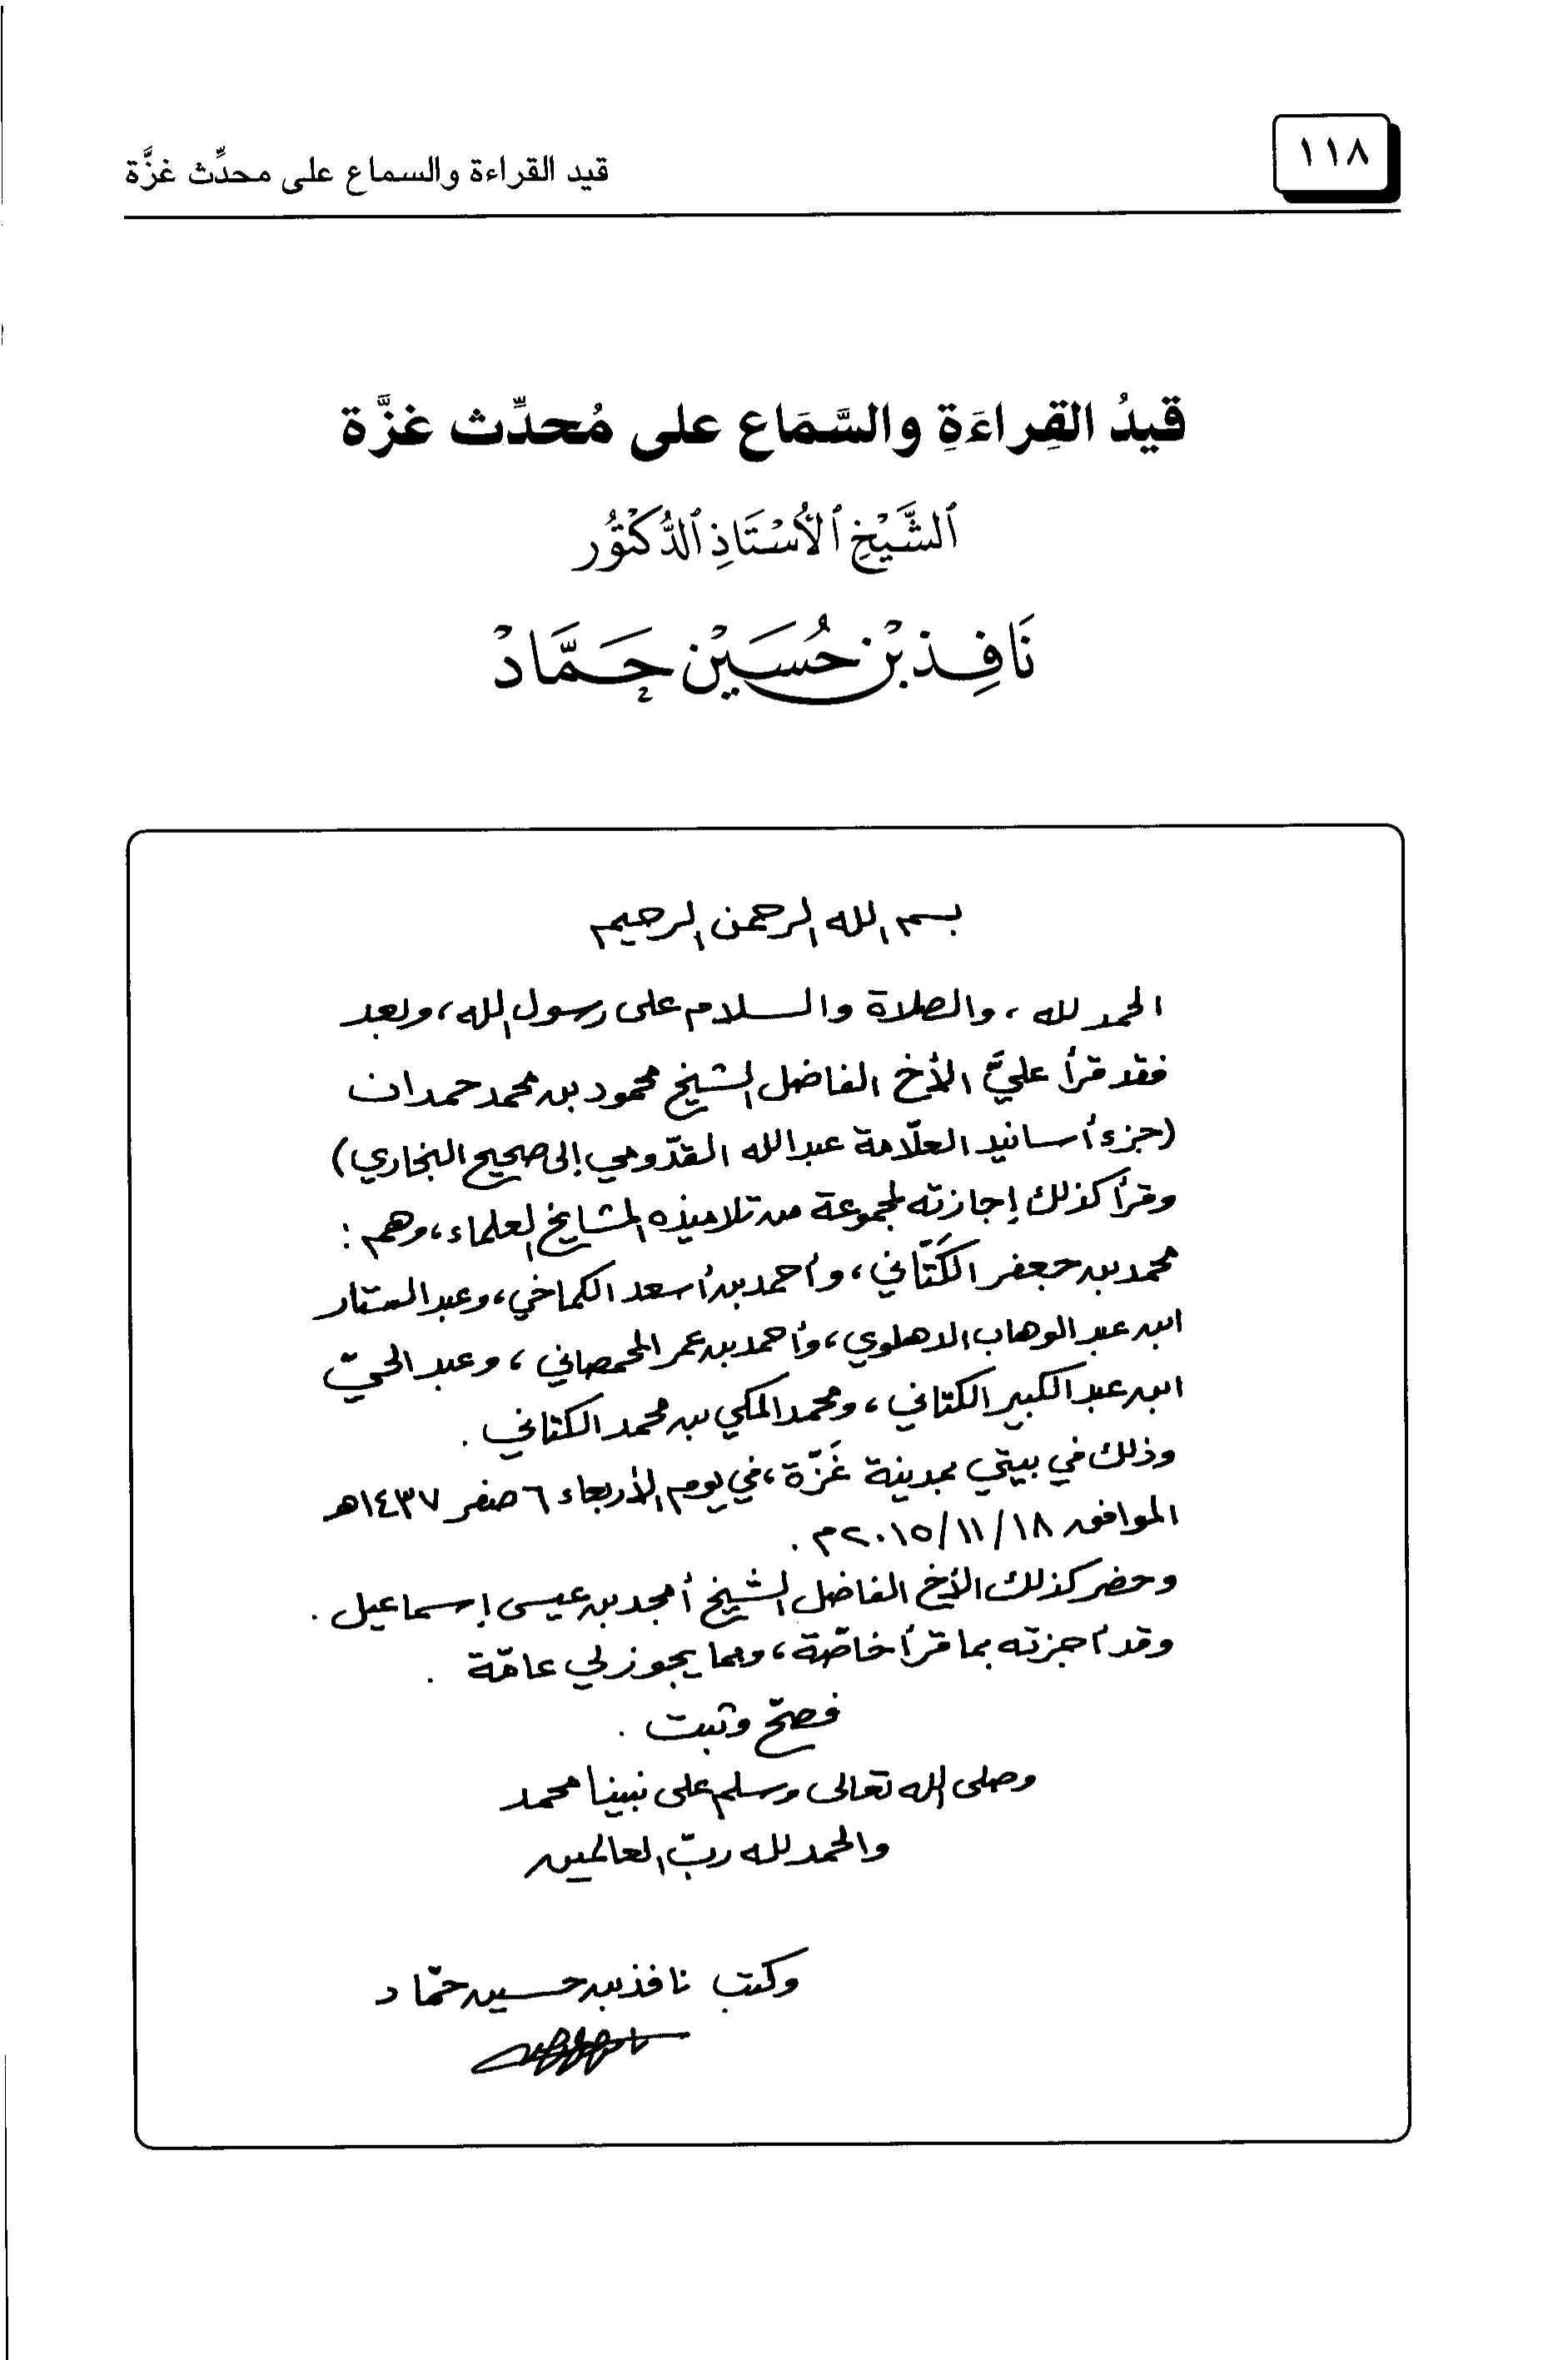 ١١٨
قيد القراءة والسماع على محدِّث غزَّة
قيدُ القِراءَةِ والسَّمَاع على مُحدِّث غزَّة
ٱلشَّيْخِ ٱلأُسْتَاذِ ٱلدُّكْتُور
نَافِذ بْن حُسَيْن حَمَّاد
بسم الله الرحمن الرحيم
الحمد لله، والصلاة والسلام على رسول الله، وبعد
فقد قرأ عليَّ الأخ الفاضل الشيخ محمود بن محمد حمدان
(جزء أسانيد العلّامة عبدالله القدّومي إلى صحيح البخاري)
وقرأ كذلك إجازته لمجموعة من تلاميذه المشايخ العلماء، وهم:
محمد بن جعفر الكَتّاني، وأحمد بن أسعد الكماخي، وعبد الستار
ابن عبد الوهاب الدهلوي، وأحمد بن عمر المحمصاني، وعبد الحيّ
ابن عبد الكبير الكتاني، ومحمد المكي بن محمد الكتاني.
وذلك في بيتي بمدينة غَزّة، في يوم الأربعاء ٦ صفر ١٤٣٧هـ
الموافق ١٨/١١/٢٠١٥م.
وحضر كذلك الأخ الفاضل الشيخ أمجد بن عيسى إسماعيل.
وقد أجزته بما قرأ خاصّة، وبما يجوز لي عامّة.
فصحّ وثبت.
وصلى الله تعالى وسلم على نبينا محمد
والحمد لله ربّ العالمين
وكتب نافذ بن حسين حمّاد